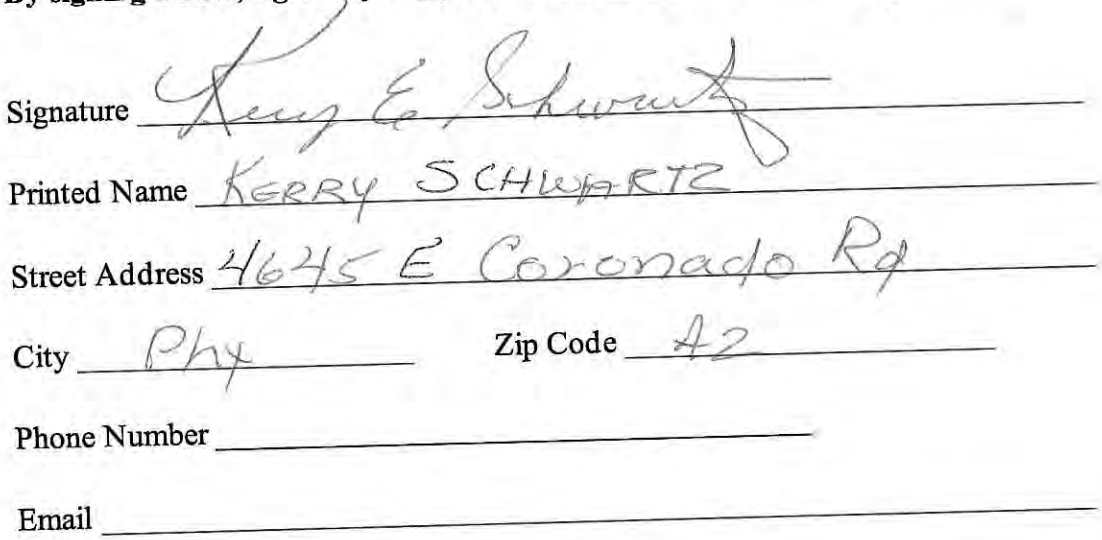 By signing
Signature Kerry E Schwartz
Printed Name KERRY SCHWARTZ
Street Address 4645 E Coronado Rd
City Phx Zip Code AZ
Phone Number
Email